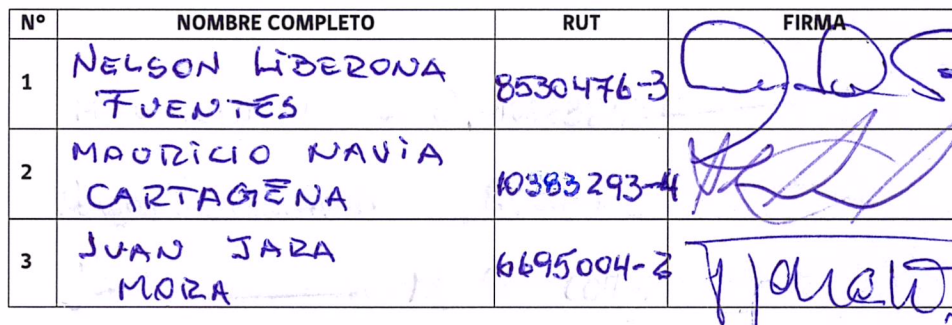 N° NOMBRE COMPLETO RUT FIRMA
1 NELSON LIBERONA
FUENTES 8530476-3
2 MAURICIO NAVIA
CARTAGENA 10383293-4
3 JUAN JARA
MORA 6695004-2